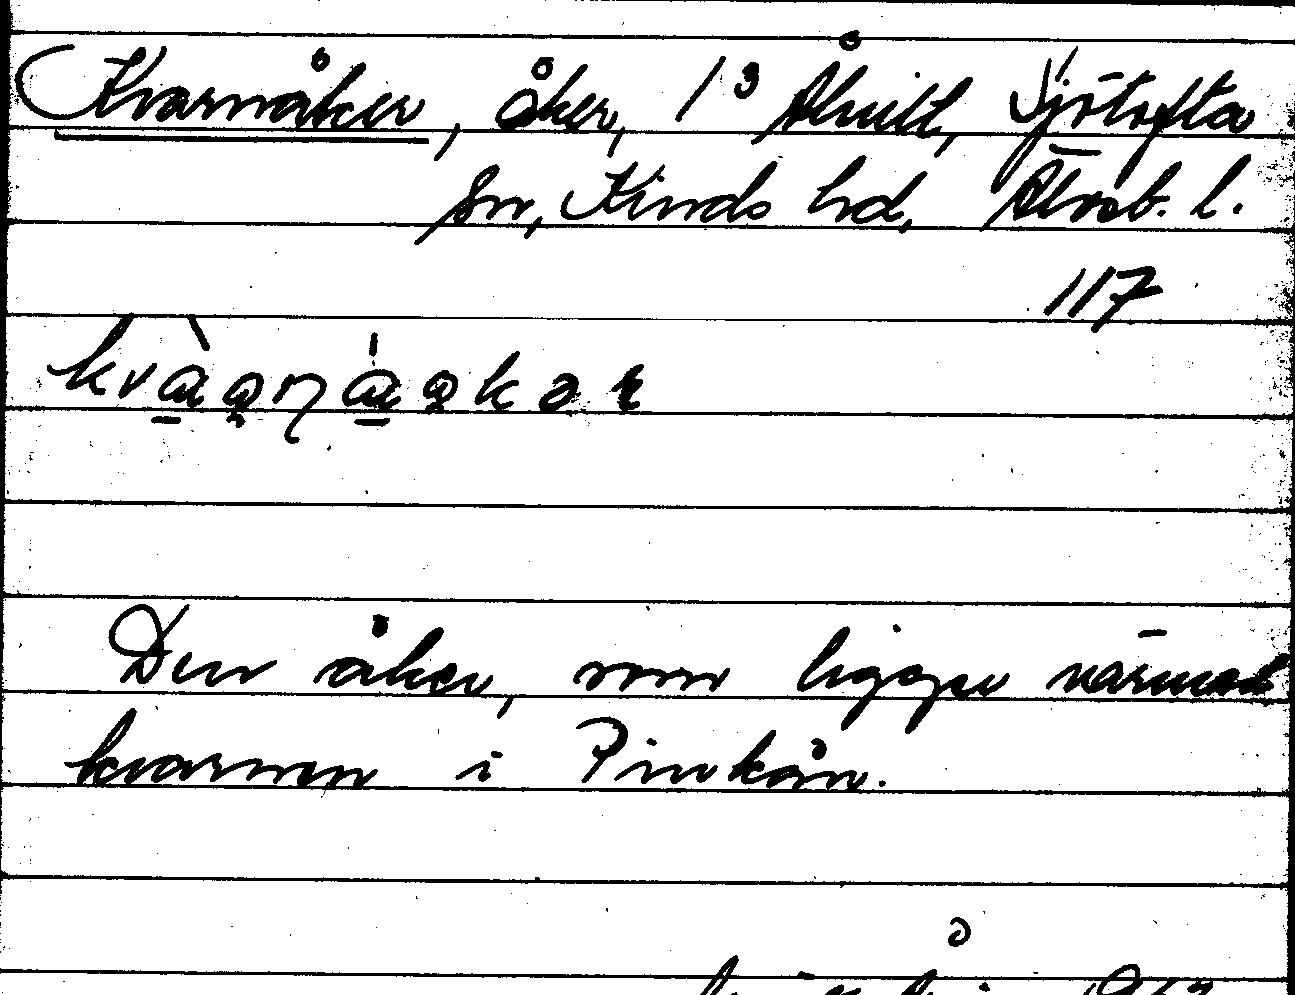 Kvarnåker, åker, 1³ Åhult, Sjötofta
sn, Kinds hd, Älvsb. l.
117
Den åker, som ligger närmast
kvarnen i Pinkån.